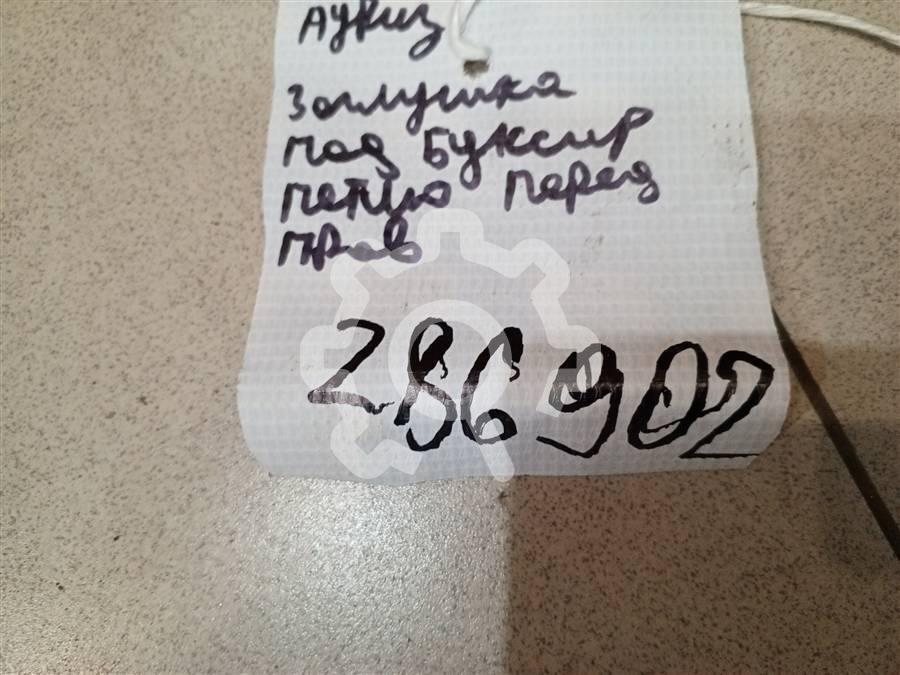 Ауриз
Заглушка
под буксир
петлю перед
прав
286902